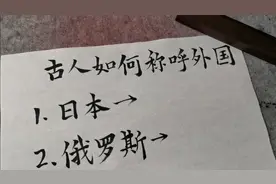 古人如何称呼外国
1.日本→
2.俄罗斯→